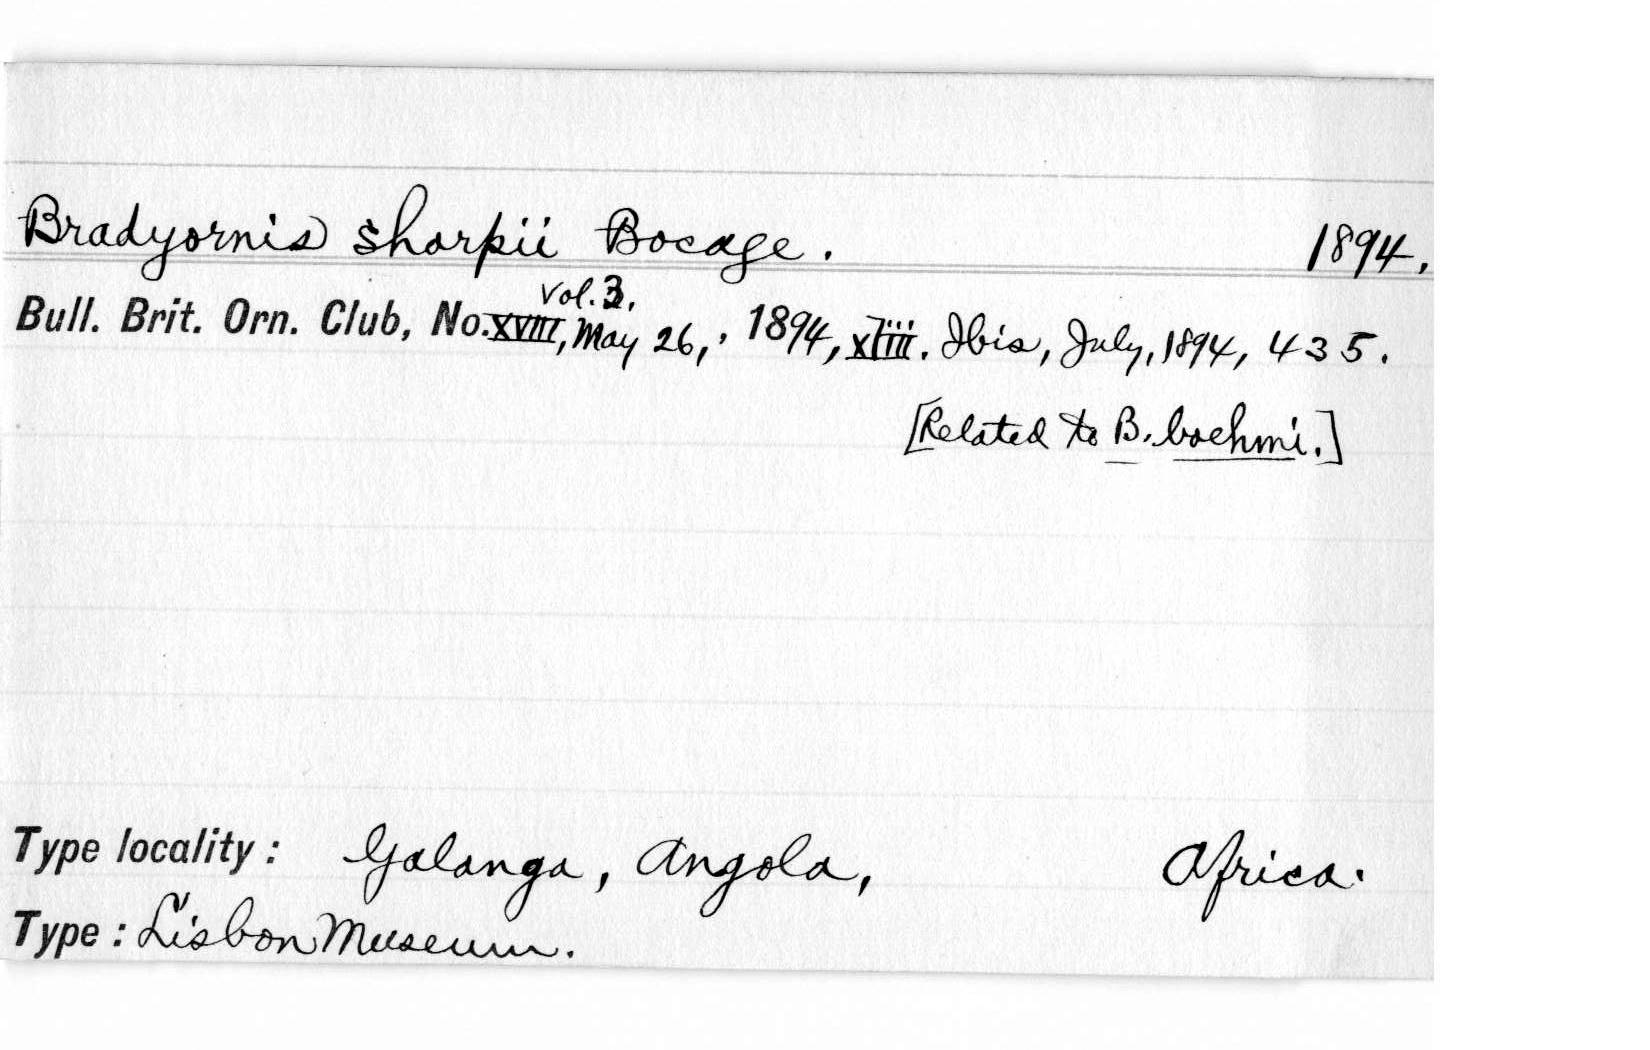 Bradyornis sharpii Bocage. 1894.
Vol. 3.
Bull. Brit. Orn. Club, No. XVIII, May 26,, 1894, xliii. Ibis, July, 1894, 435.
[Related to B. boehmi.]
Type locality: Galanga, Angola, Africa.
Type: Lisbon Museum.